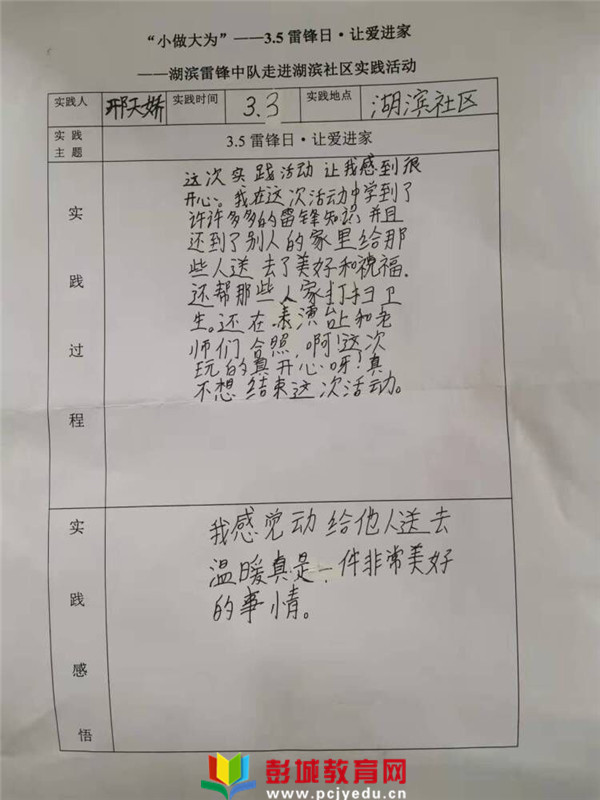 “小做大为”——3.5 雷锋日·让爱进家
——湖滨雷锋中队走进湖滨社区实践活动
实践人 邢天娇 实践时间 3.3 实践地点 湖滨社区
实践主题 3.5 雷锋日·让爱进家
实践过程
这次实践活动 让我感到很
开心。我在这次活动中学到了
许许多多的雷锋知识 并且
还到了别人的家里给那
些人送去了美好和祝福.
还帮那些人家打扫卫
生。还在表演台上和老
师们合照,啊!这次
玩的真开心呀!真
不想结束这次活动。
实践感悟
我感觉动给他人送去
温暖真是一件非常美好
的事情。
彭城教育网
www.pcjyedu.cn